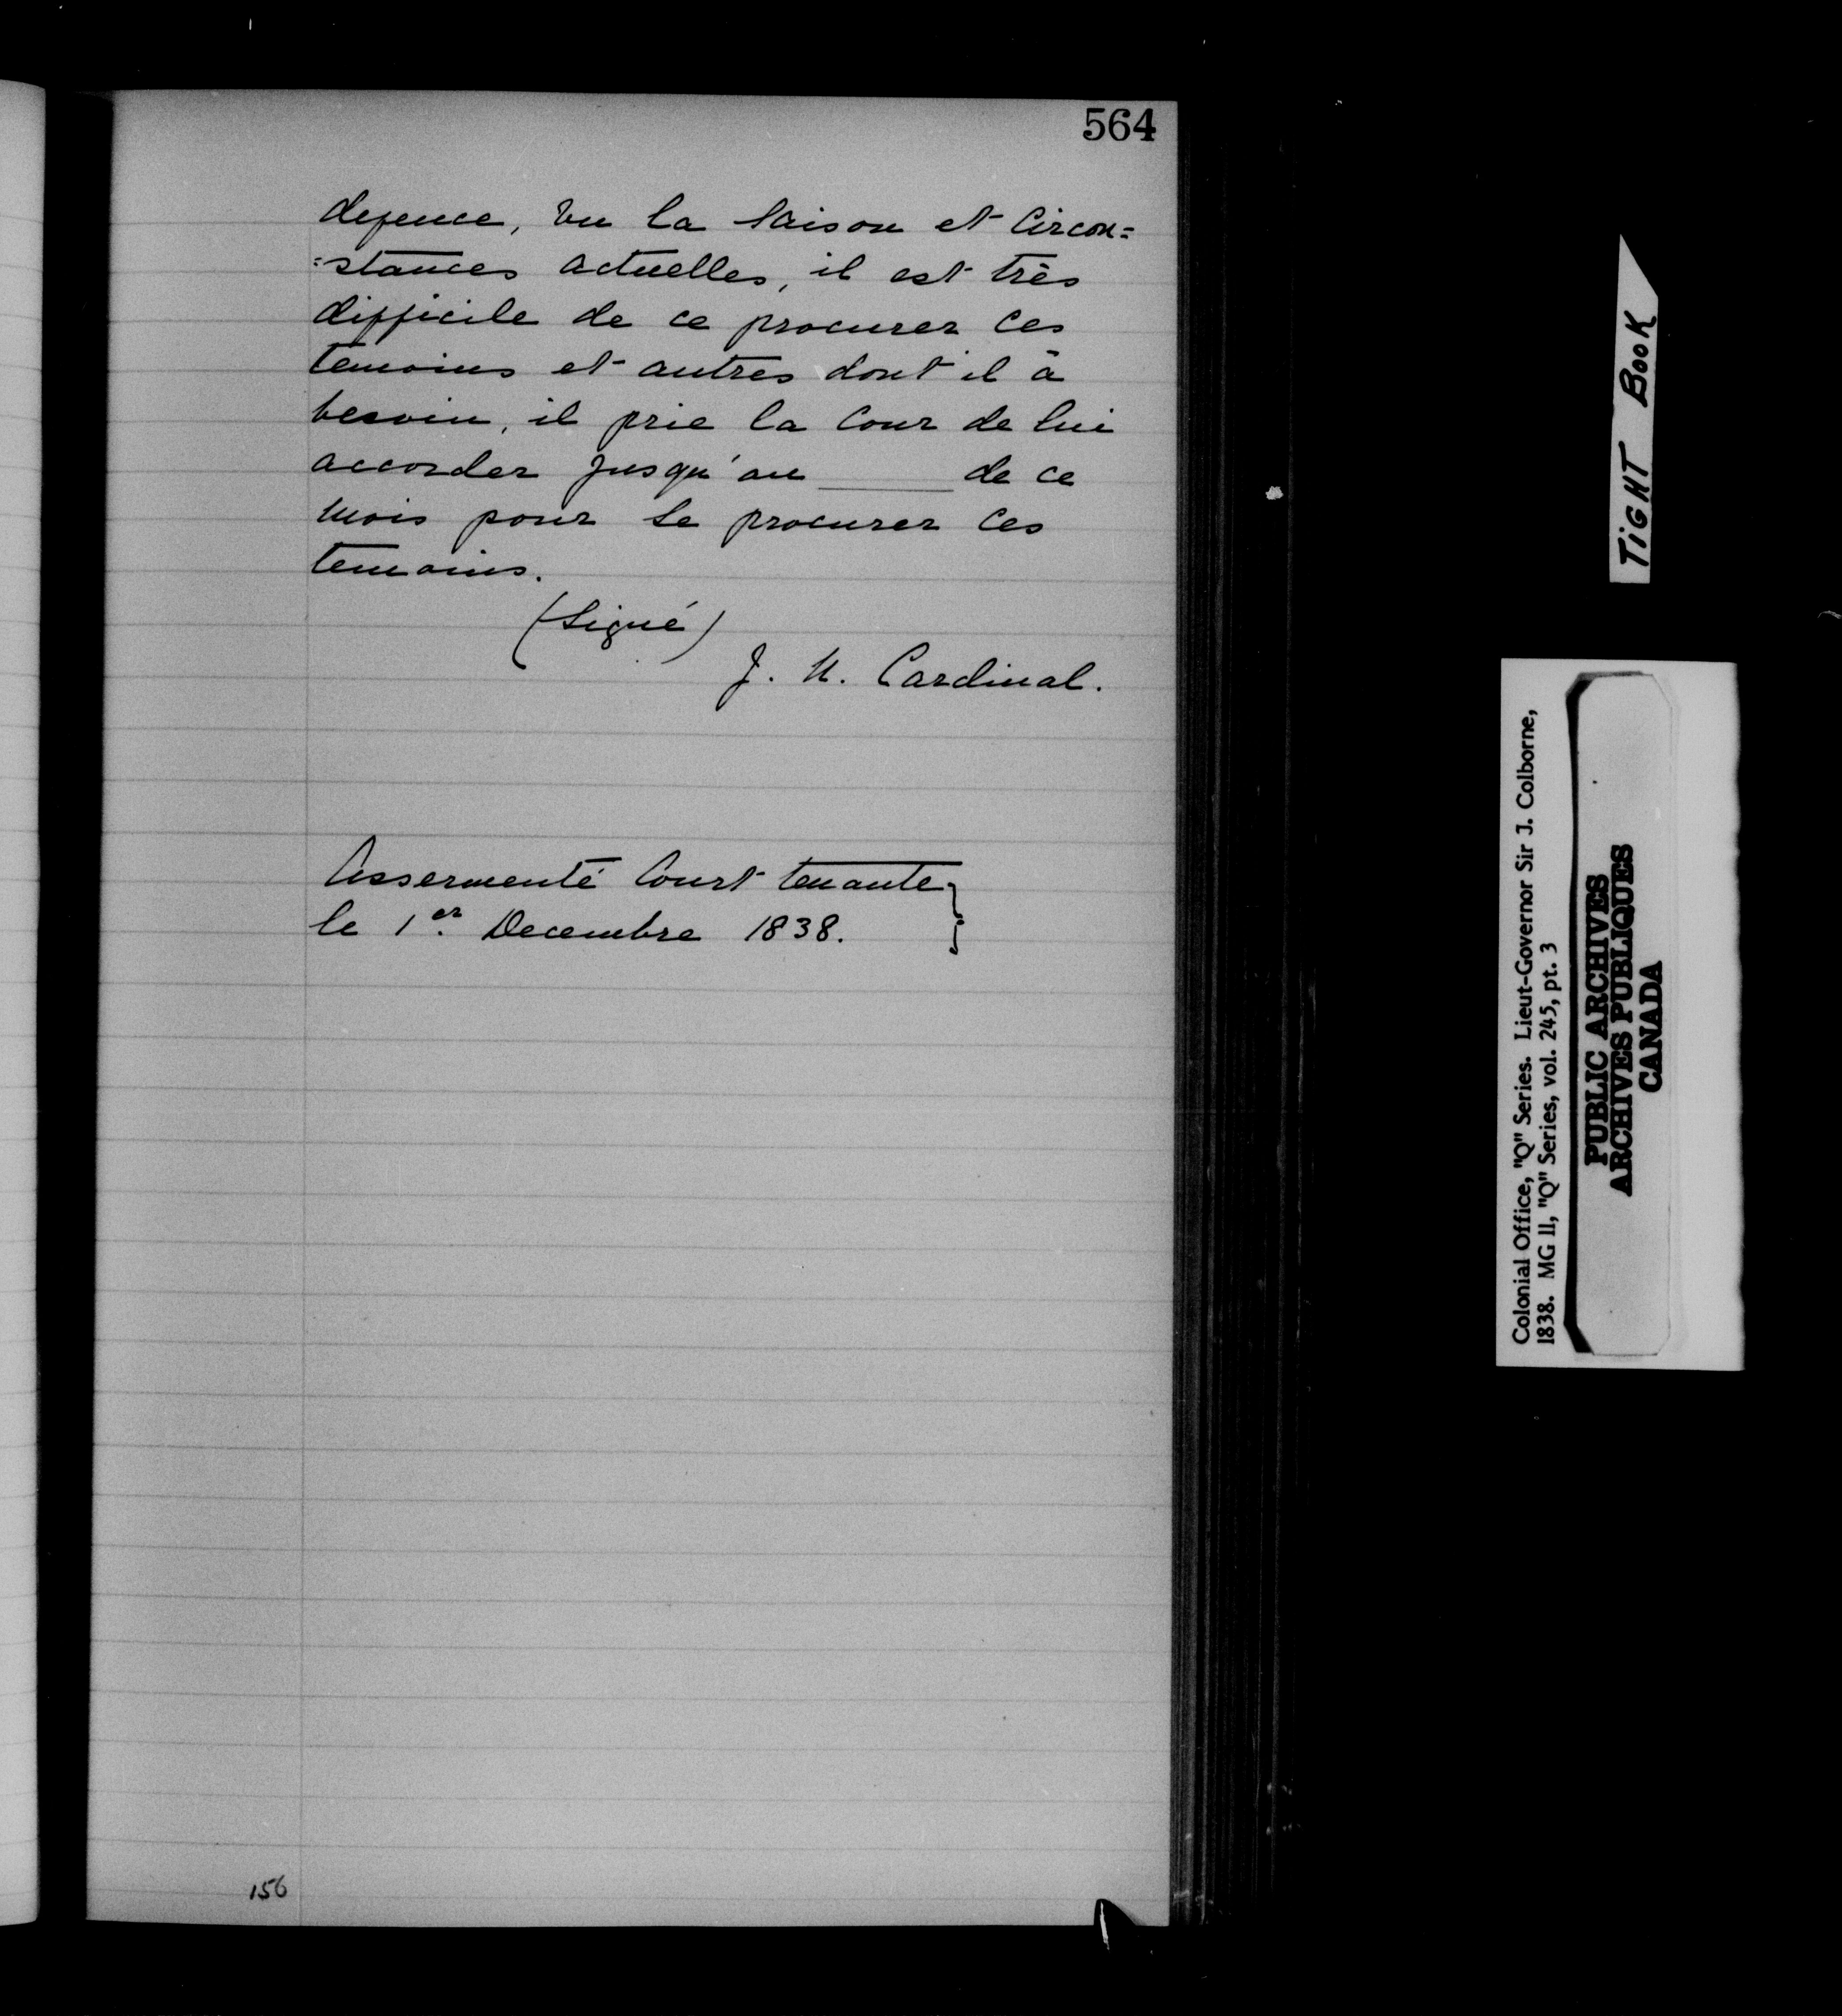 564
defence, vu la saison et circon=
=stances actuelles, il est très
difficile de ce procurer ces
temoins et autres dont il à
besoin, il prie la Cour de lui
accorder jusqu'au ______ de ce
mois pour se procurer ces
temoins.
(Signé)
J. N. Cardinal.
Assermenté Court tenante
le 1er. Decembre 1838.
156
TIGHT BOOK
Colonial Office, "Q" Series. Lieut-Governor Sir J. Colborne,
1838. MG 11, "Q" Series, vol. 245, pt. 3
PUBLIC ARCHIVES
ARCHIVES PUBLIQUES
CANADA